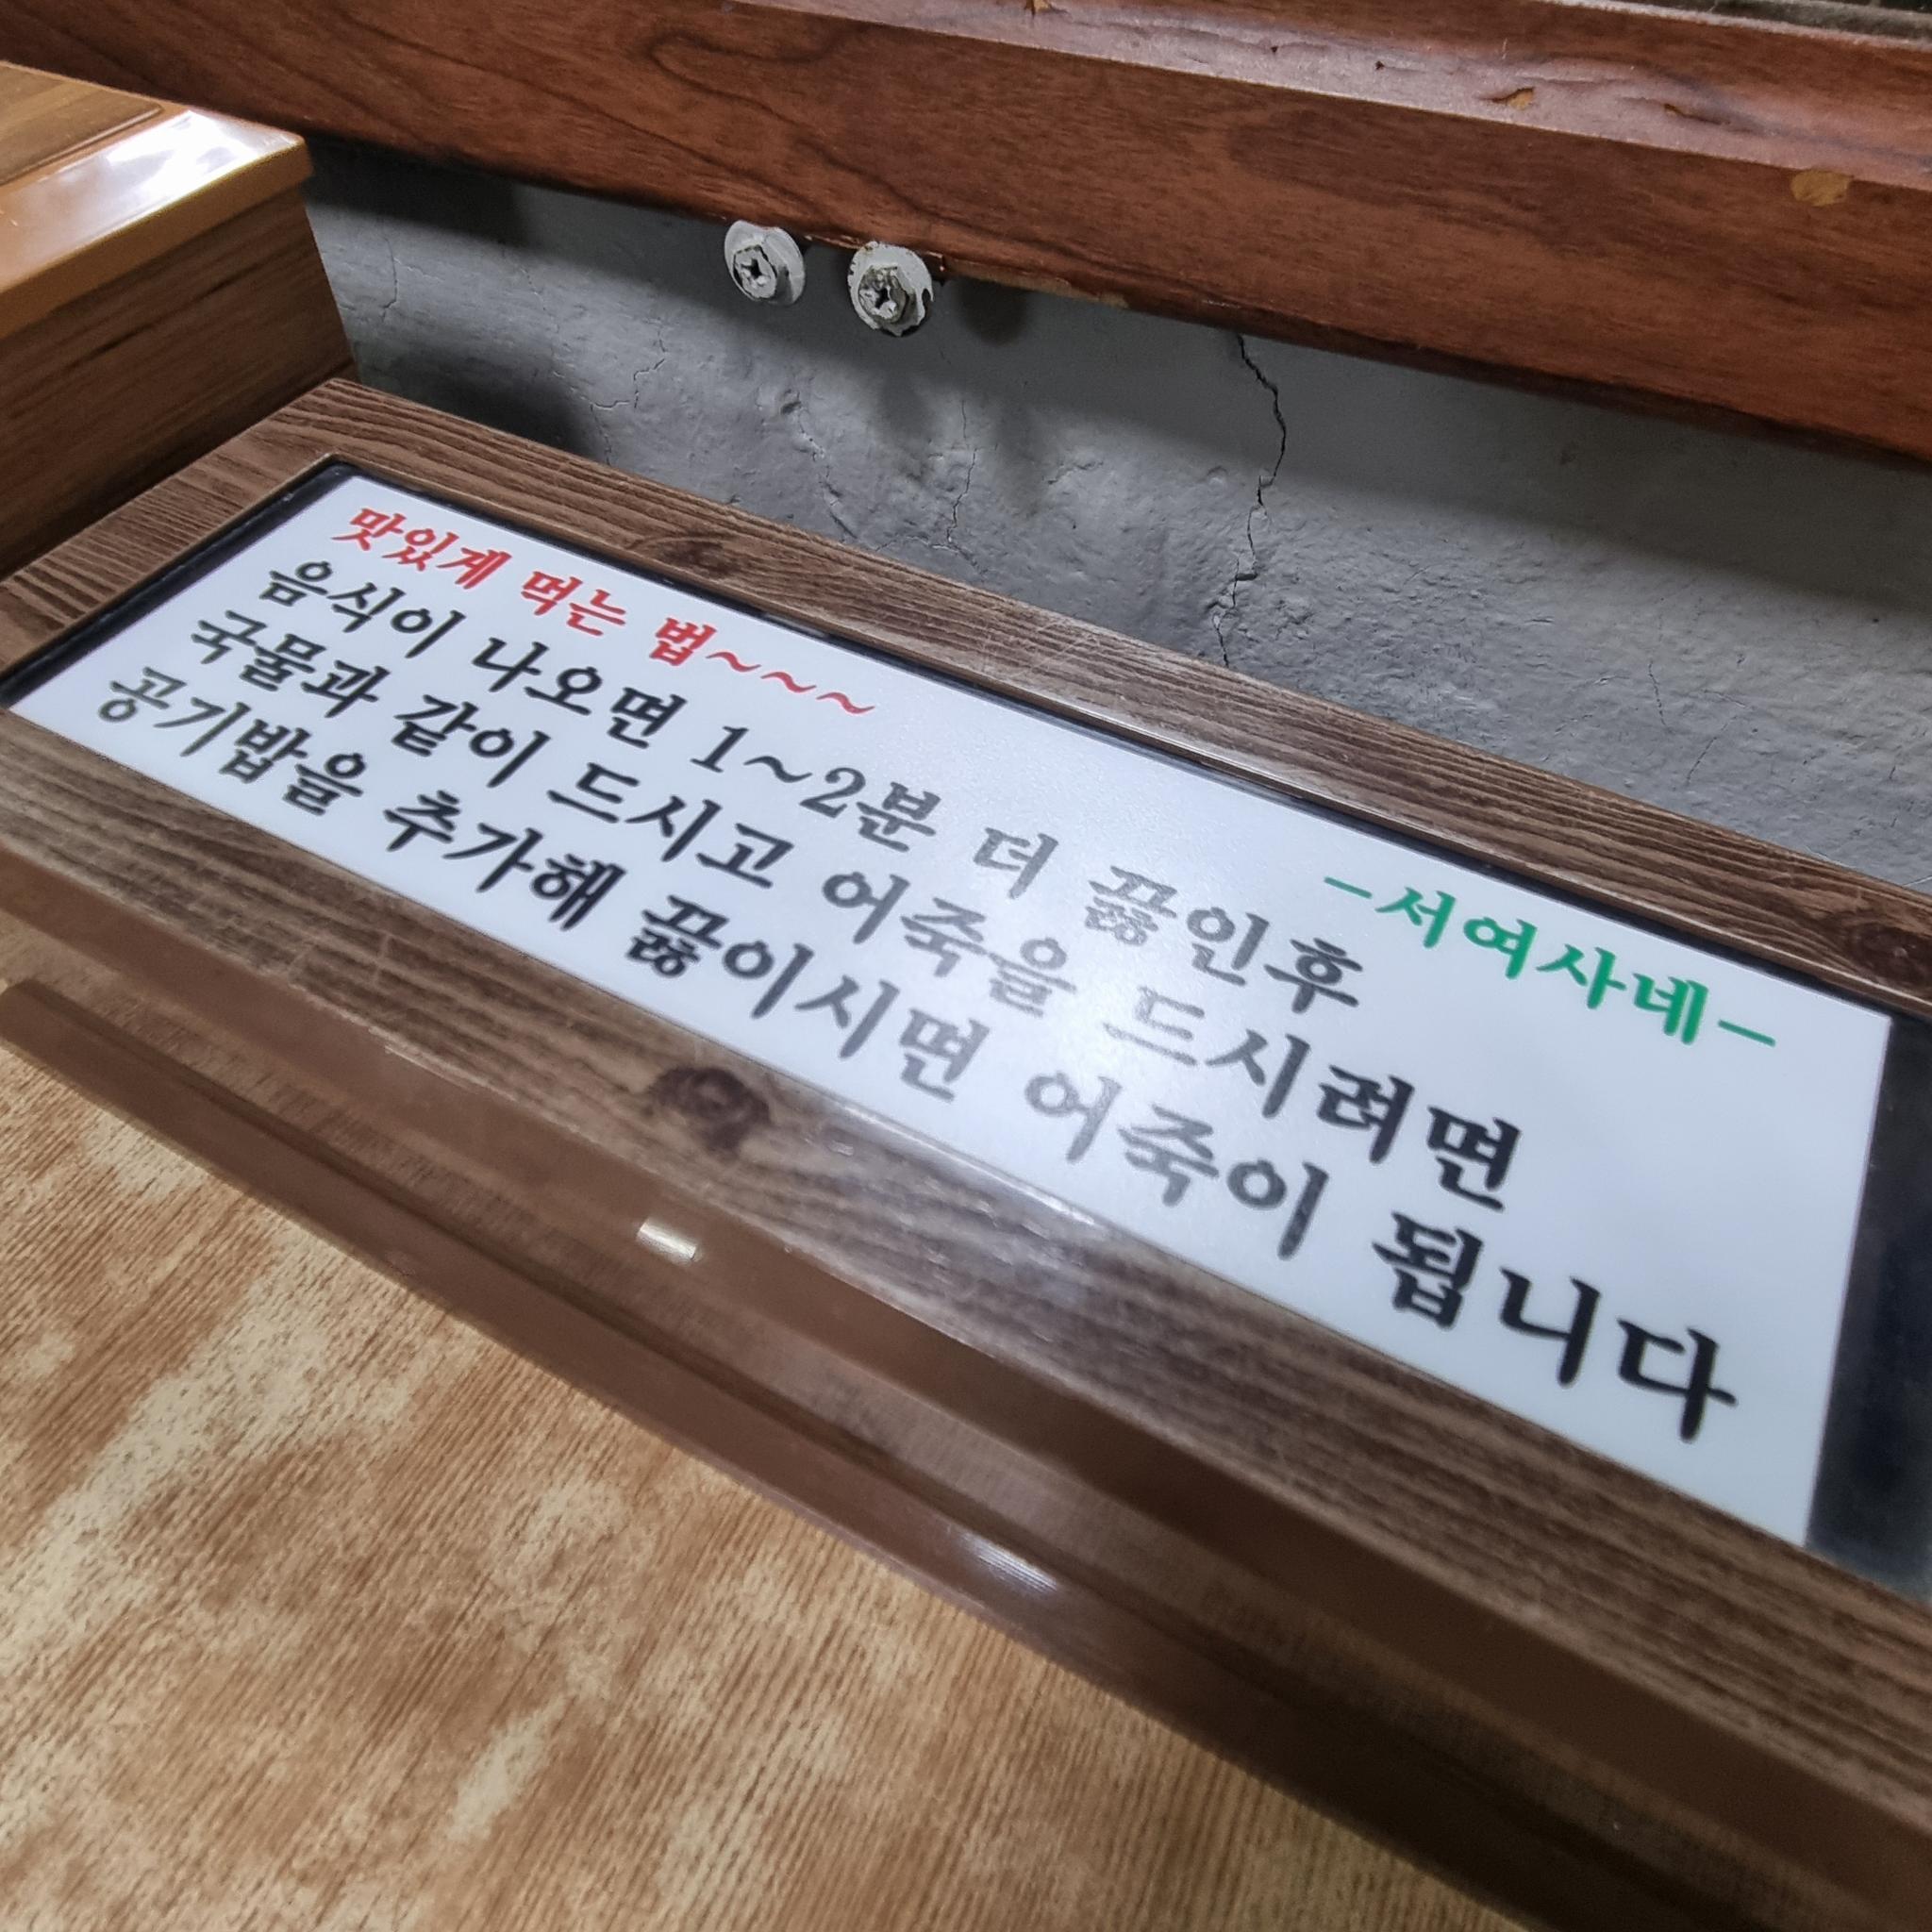 맛있게 먹는 법~~~
음식이 나오면 1~2분 더 끓인후
국물과 같이 드시고 어죽을 드시려면
공기밥을 추가해 끓이시면 어죽이 됩니다
-서여사네-